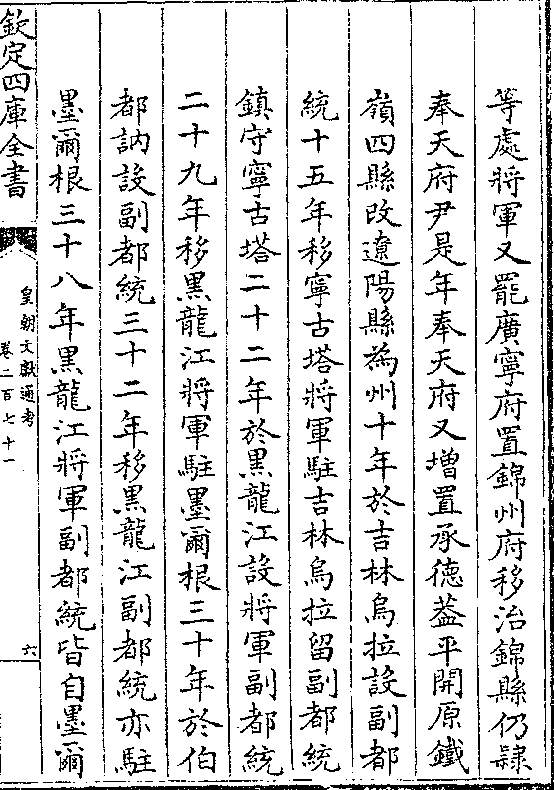 等處將軍又罷廣寧府置錦州府移治錦縣仍隸
奉天府尹是年奉天府又增置承德葢平開原鐵
嶺四縣改遼陽縣為州十年於吉林烏拉設副都
統十五年移寧古塔將軍駐吉林烏拉留副都統
鎮守寧古塔二十二年於黒龍江設將軍副都統
二十九年移黒龍江將軍駐墨爾根三十年於伯
都訥設副都統三十二年移黒龍江副都統亦駐
墨爾根三十八年黒龍江將軍副都統皆自墨爾
欽定四庫全書
皇朝文獻通考
卷二百七十一
六